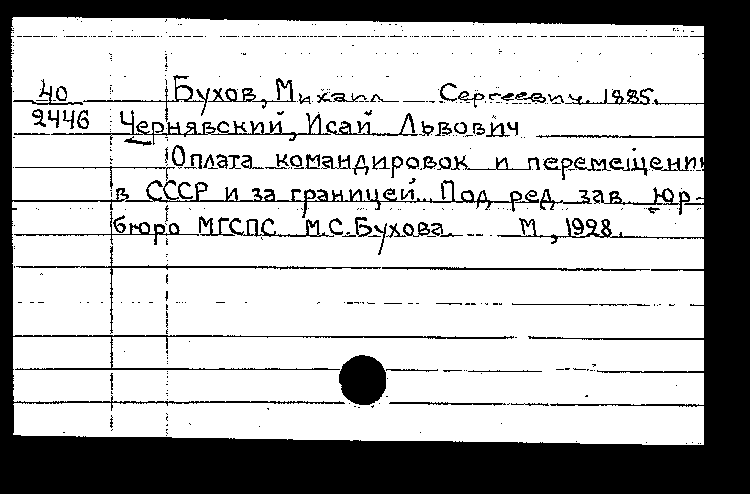 40 Бухов, Михаил Сергеевич. 1885.
2446 Чернявский, Исай Львович
Оплата командировок и перемещении
в СССР и за границей. Под ред. зав. юр-
бюро МГСПС М.С.Бухова. М., 1928.